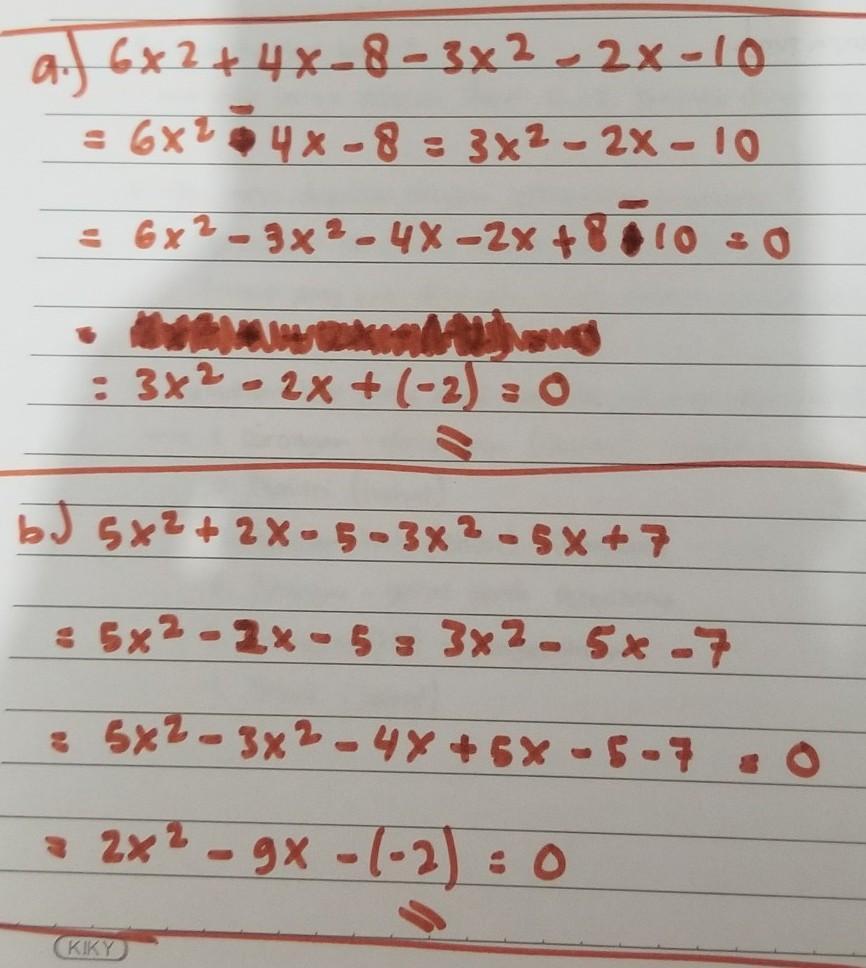 a.) 6x² + 4x - 8 - 3x² - 2x - 10
= 6x² - 4x - 8 = 3x² - 2x - 10
= 6x² - 3x² - 4x - 2x + 8 - 10 = 0
=
= 3x² - 2x + (-2) = 0
b) 5x² + 2x - 5 - 3x² - 5x + 7
= 5x² - 2x - 5 = 3x² - 5x - 7
= 5x² - 3x² - 4x + 5x - 5 - 7 = 0
= 2x² - 9x - (-2) = 0
KIKY